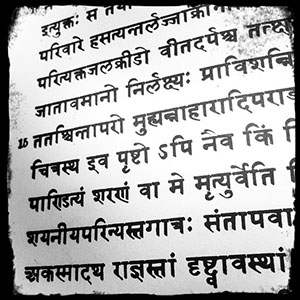 इत्युक्तः स तथा
परिवारे हसत्यन्तर्लज्जाक्रा
परित्यक्तजलक्रीडो वीतदर्पश्च तत्क्ष
जातावमानो निर्लक्ष्यः प्राविशन्नि
15 ततश्चिन्तापरो मुह्यन्नाहारादिपराङ्
चित्रस्थ इव पृष्टो ऽपि नैव किं
पाण्डित्यं शरणं वा मे मृत्युर्वेति
शयनीयपरिन्यस्तगात्रः संतापवा
अकस्मादथ राज्ञस्तां दृष्ट्वावस्थां